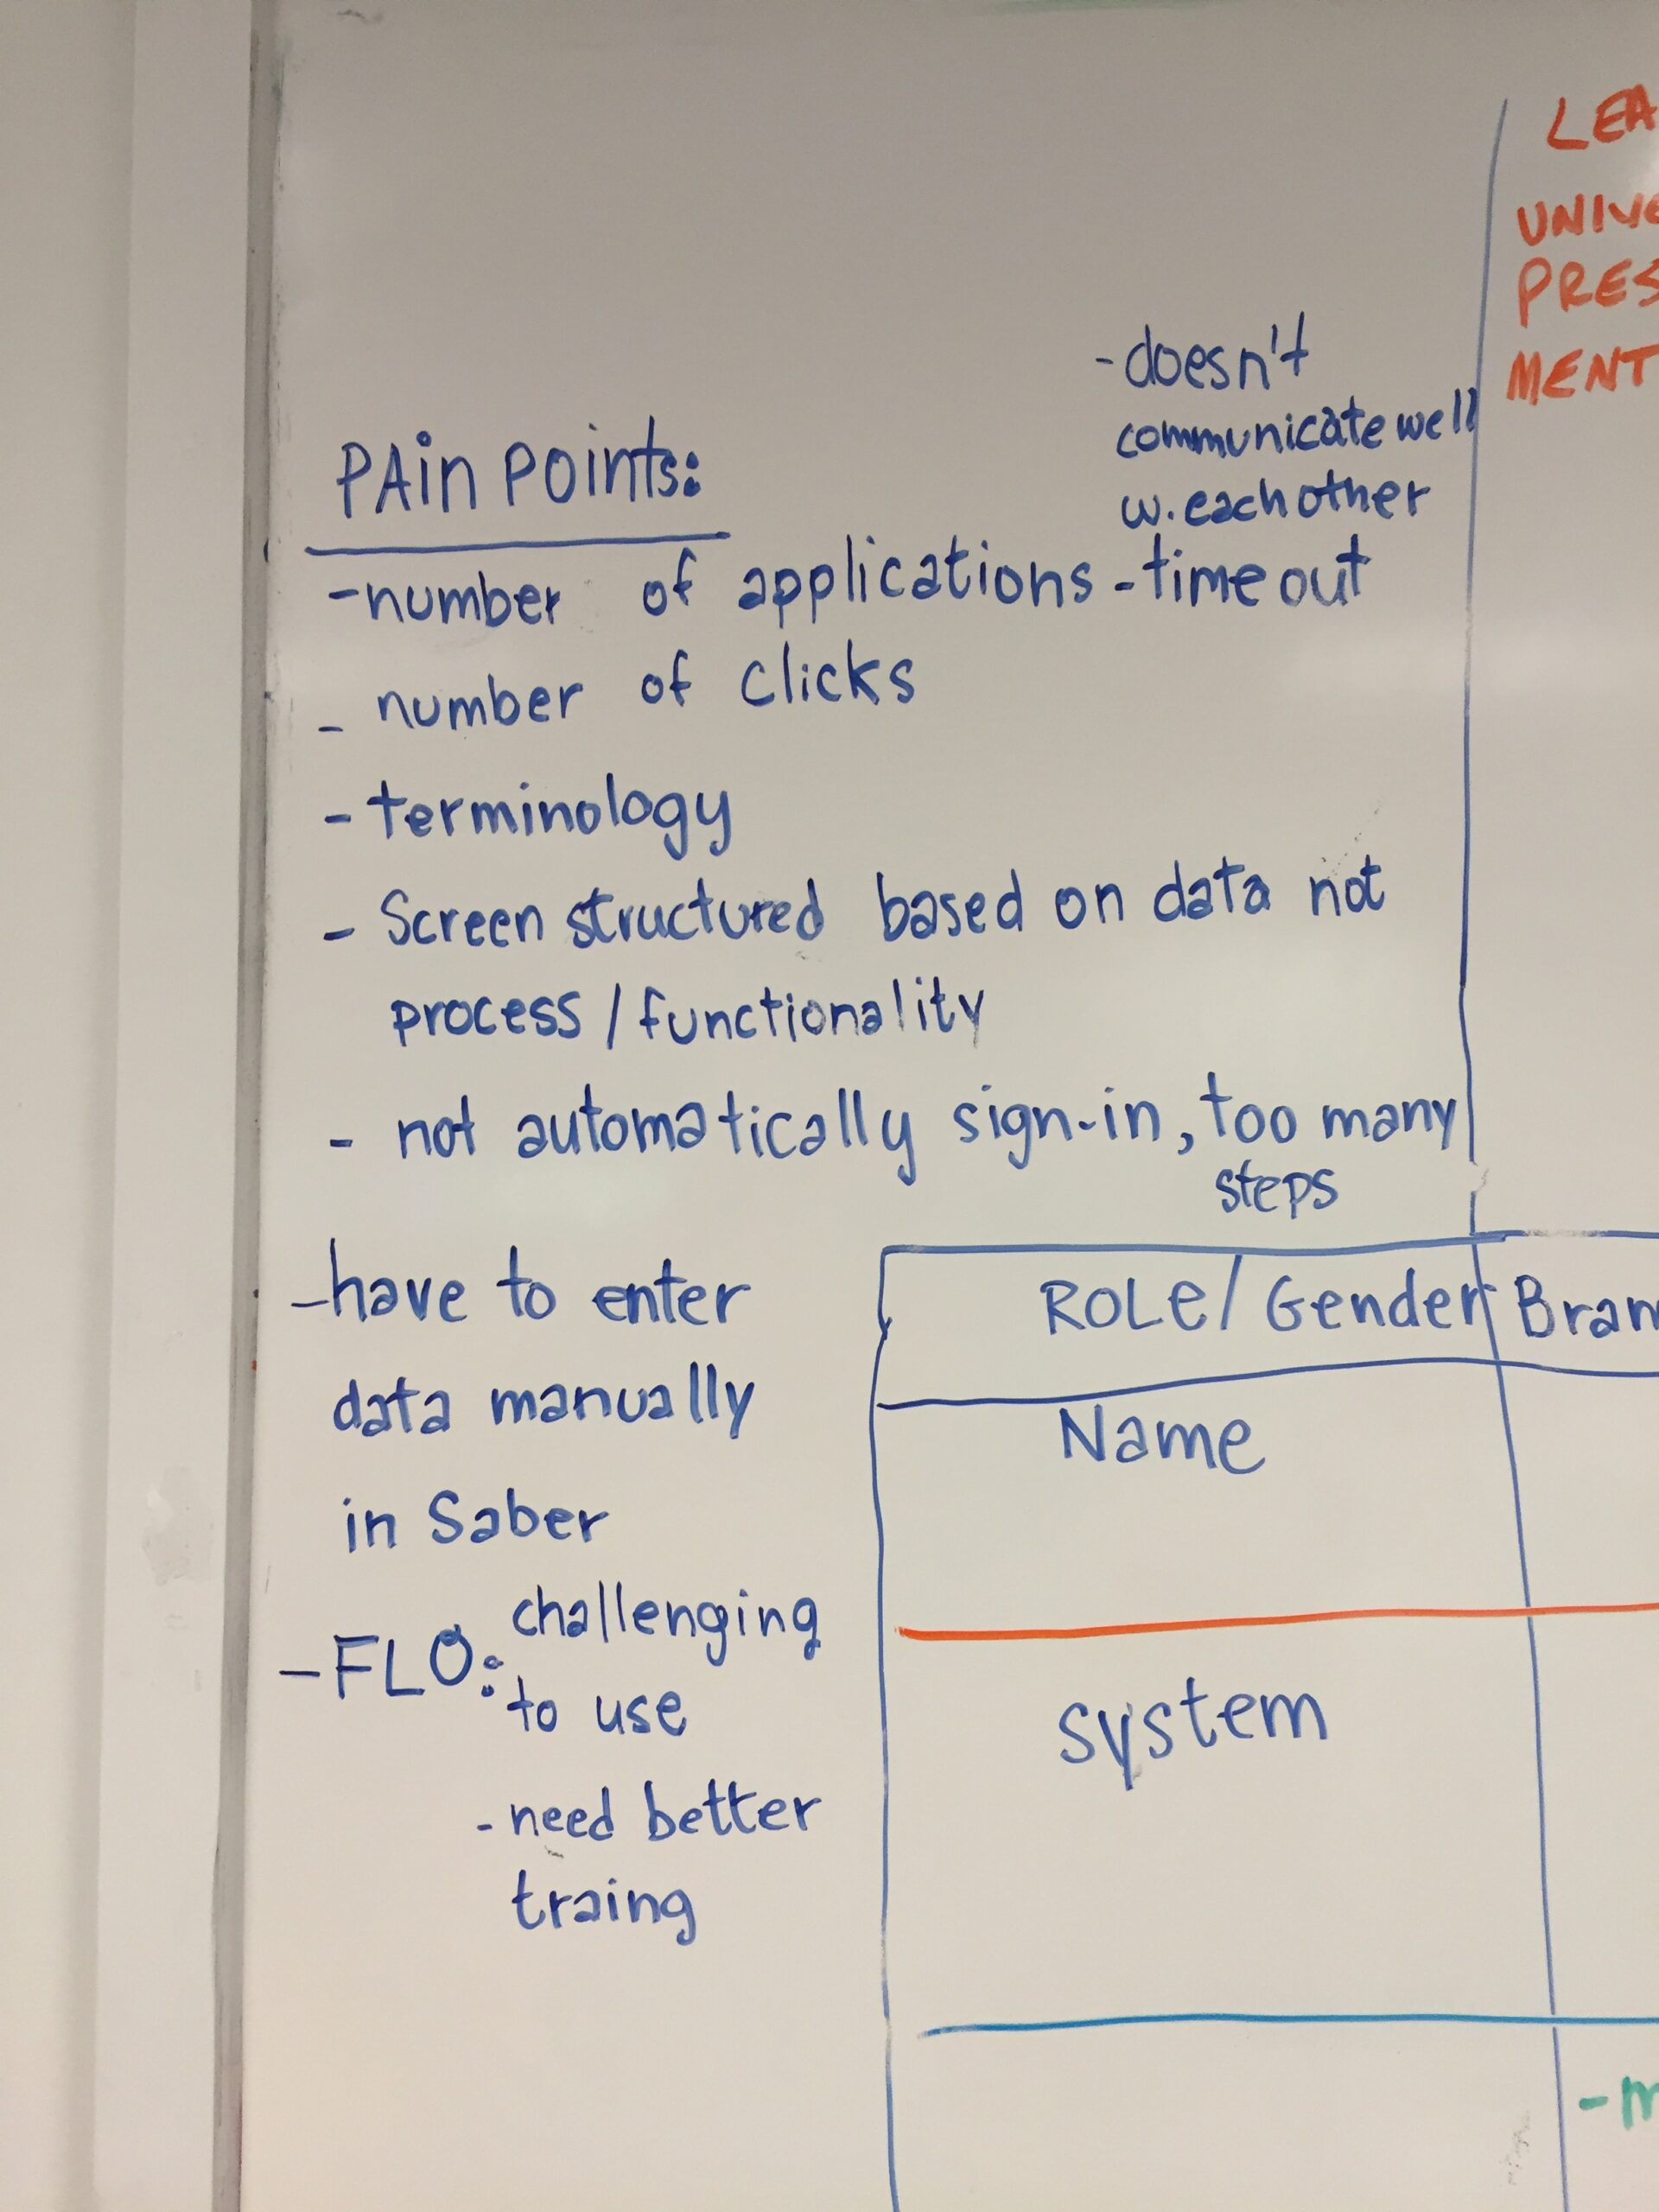 LEA
UNIVE
PRES
MENT
- doesn't
communicate well
w. each other
PAin Points:
- number of applications - time out
- number of clicks
- terminology
- Screen structured based on data not
process / functionality
- not automatically sign-in, too many
steps
- have to enter
data manually
in Saber
- FLO: challenging
to use
- need better
traing
ROLe/ Gender Bran
Name
system
- m